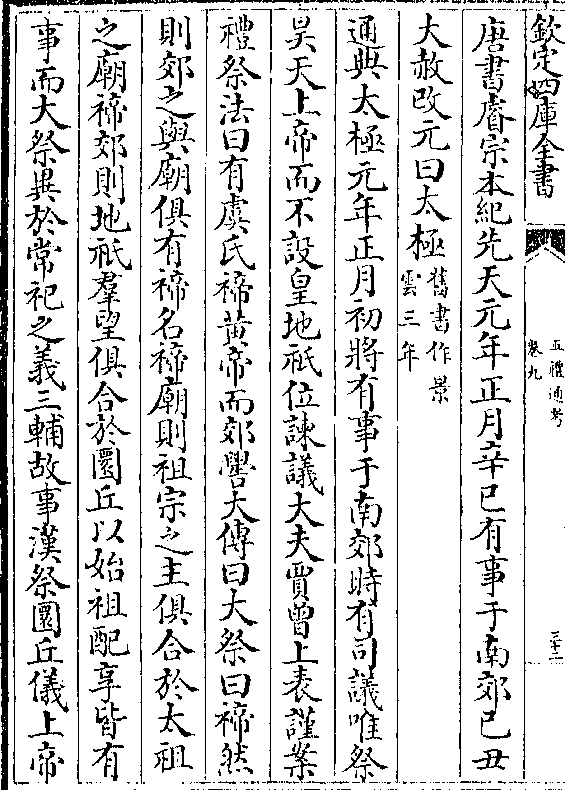 欽定四庫全書
五禮通考
卷九
三十二
唐書睿宗本紀先天元年正月辛巳有事于南郊己丑
大赦改元曰太極
舊書作景
雲三年
通典太極元年正月初將有事于南郊時有司議唯祭
昊天上帝而不設皇地祇位諫議大夫賈曾上表謹案
禮祭法曰有虞氏禘黃帝而郊嚳大傳曰大祭曰禘然
則郊之與廟俱有禘名禘廟則祖宗之主俱合於太祖
之廟禘郊則地祇羣望俱合於圜丘以始祖配享皆有
事而大祭異於常祀之義三輔故事漢祭圜丘儀上帝